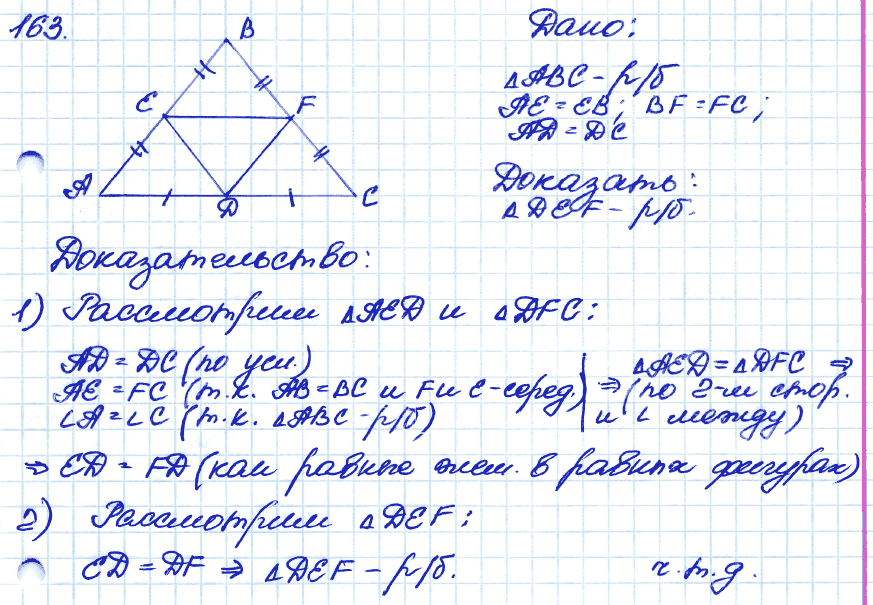 163.
B
E
F
A
D
C
Дано:
△ABC - р/б
AE = EB; BF = FC;
AD = DC
Доказать:
△DEF - р/б.
Доказательство:
1) Рассмотрим △AED и △DFC:
AD = DC (по усл.)
AE = FC (т.к. AB = BC и F и E - серед.)
∠A = ∠C (т.к. △ABC - р/б)
⇒ △AED = △DFC ⇒
(по 2-м стор.
и ∠ между)
⇒ ED = FD (как равные элем. в равных фигурах)
2) Рассмотрим △DEF:
ED = DF ⇒ △DEF - р/б.
ч.т.д.